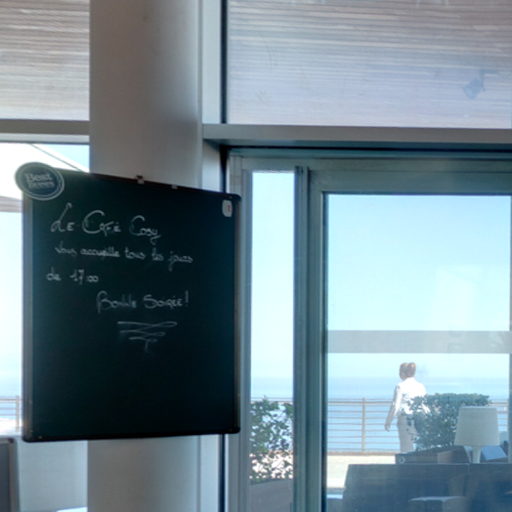 Best
Le Café Cosy
vous accueille tous les jours
de 17:00
Bonne Soirée!